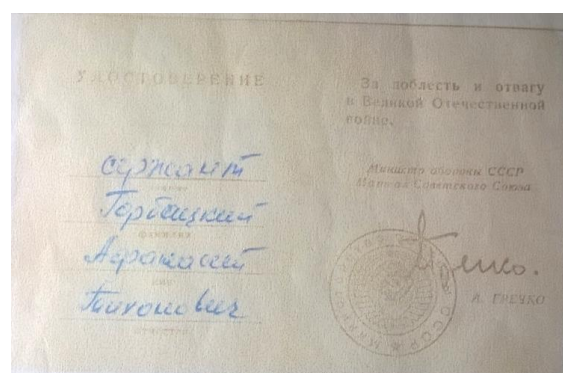 УДОСТОВЕРЕНИЕ
сержант
Горбацкий
фамилия
Афанасий
имя
Тихонович
отчество
За доблесть и отвагу
в Великой Отечественной
войне.
Министр обороны СССР
Маршал Советского Союза
Гречко.
А. ГРЕЧКО